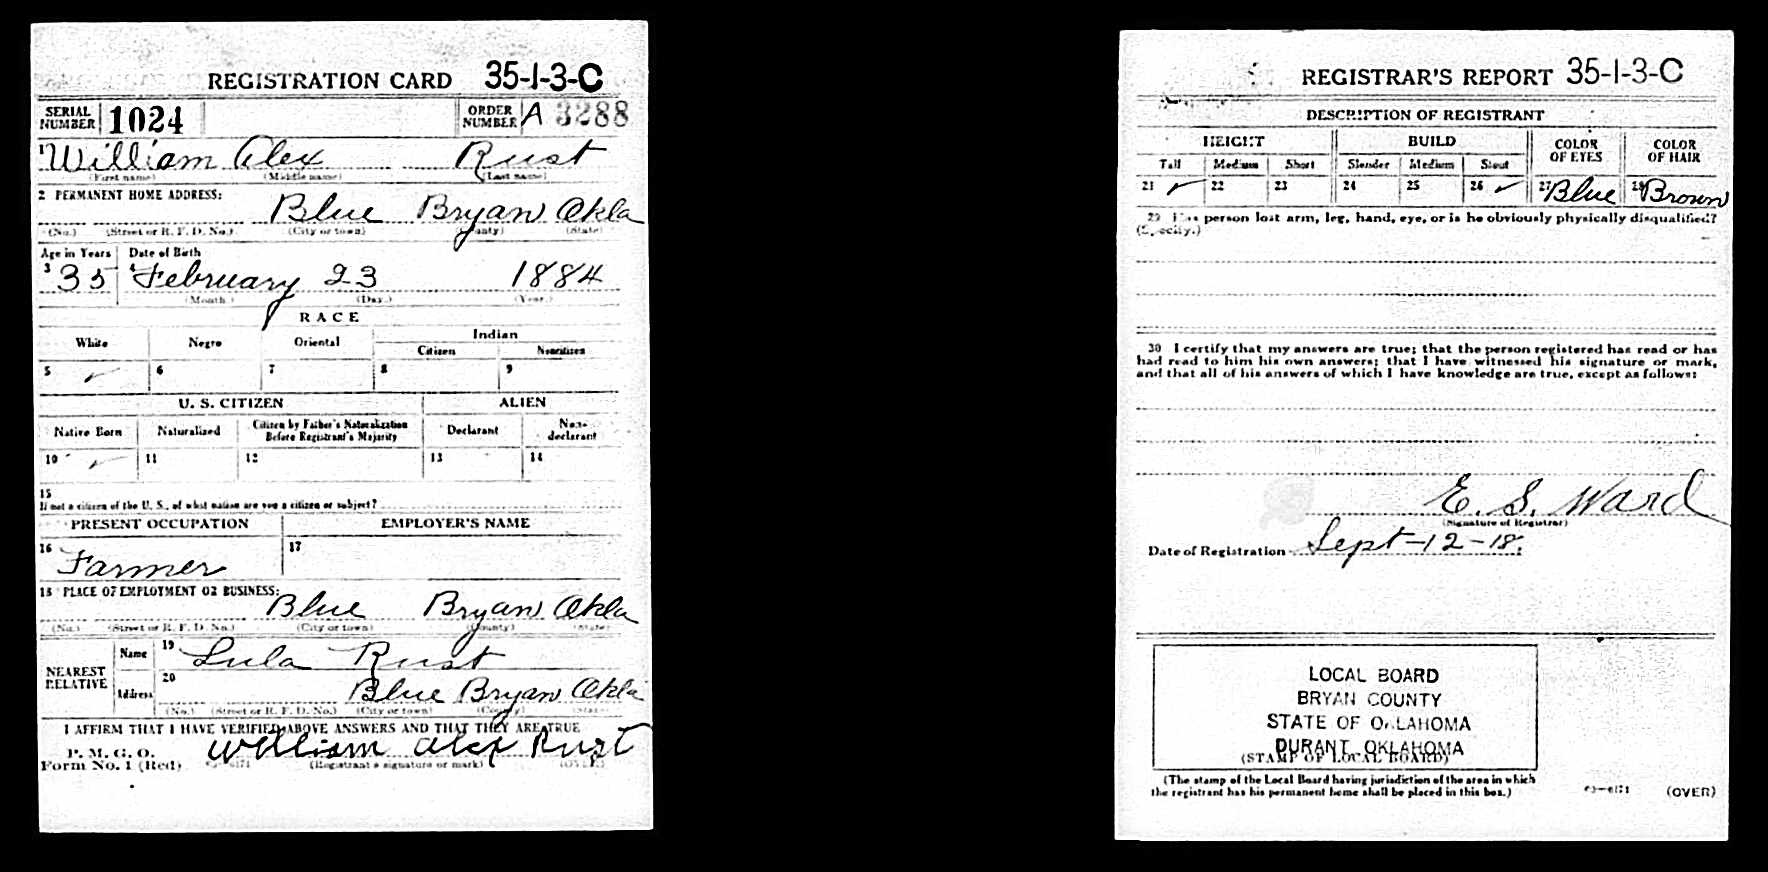 REGISTRATION CARD 35-1-3-C
SERIAL NUMBER 1024 ORDER NUMBER A 3288
1 William Alex Rust
(First name) (Middle name) (Last name)
2 PERMANENT HOME ADDRESS:
Blue Bryan Okla
(No.) (Street or R. F. D. No.) (City or town) (County) (State)
Age in Years Date of Birth
3 35 4 February 23 1884
(Month.) (Day.) (Year.)
RACE
White Negro Oriental Indian
Citizen Noncitizen
5 ✓ 6 7 8 9
U. S. CITIZEN ALIEN
Native Born Naturalized Citizen by Father's Naturalization Before Registrant's Majority Declarant Non-declarant
10 ✓ 11 12 13 14
15
If not a citizen of the U. S., of what nation are you a citizen or subject?
PRESENT OCCUPATION EMPLOYER'S NAME
16 Farmer 17
18 PLACE OF EMPLOYMENT OR BUSINESS:
Blue Bryan Okla
(No.) (Street or R. F. D. No.) (City or town) (County) (State)
NEAREST RELATIVE Name 19 Lula Rust
Address 20 Blue Bryan Okla
(No.) (Street or R. F. D. No.) (City or town) (County) (State)
I AFFIRM THAT I HAVE VERIFIED ABOVE ANSWERS AND THAT THEY ARE TRUE
P. M. G. O.
Form No. 1 (Red) William Alex Rust
(Registrant's signature or mark) (OVER)
REGISTRAR'S REPORT 35-1-3-C
DESCRIPTION OF REGISTRANT
HEIGHT BUILD COLOR OF EYES COLOR OF HAIR
Tall Medium Short Slender Medium Stout
21 ✓ 22 23 24 25 26 ✓ 27 Blue 28 Brown
29 Has person lost arm, leg, hand, eye, or is he obviously physically disqualified?
(Specify.)
30 I certify that my answers are true; that the person registered has read or has
had read to him his own answers; that I have witnessed his signature or mark,
and that all of his answers of which I have knowledge are true, except as follows:
E. S. Ward
(Signature of Registrar)
Date of Registration Sept-12-18.
LOCAL BOARD
BRYAN COUNTY
STATE OF OKLAHOMA
DURANT, OKLAHOMA
(STAMP OF LOCAL BOARD)
(The stamp of the Local Board having jurisdiction of the area in which
the registrant has his permanent home shall be placed in this box.)
(OVER)